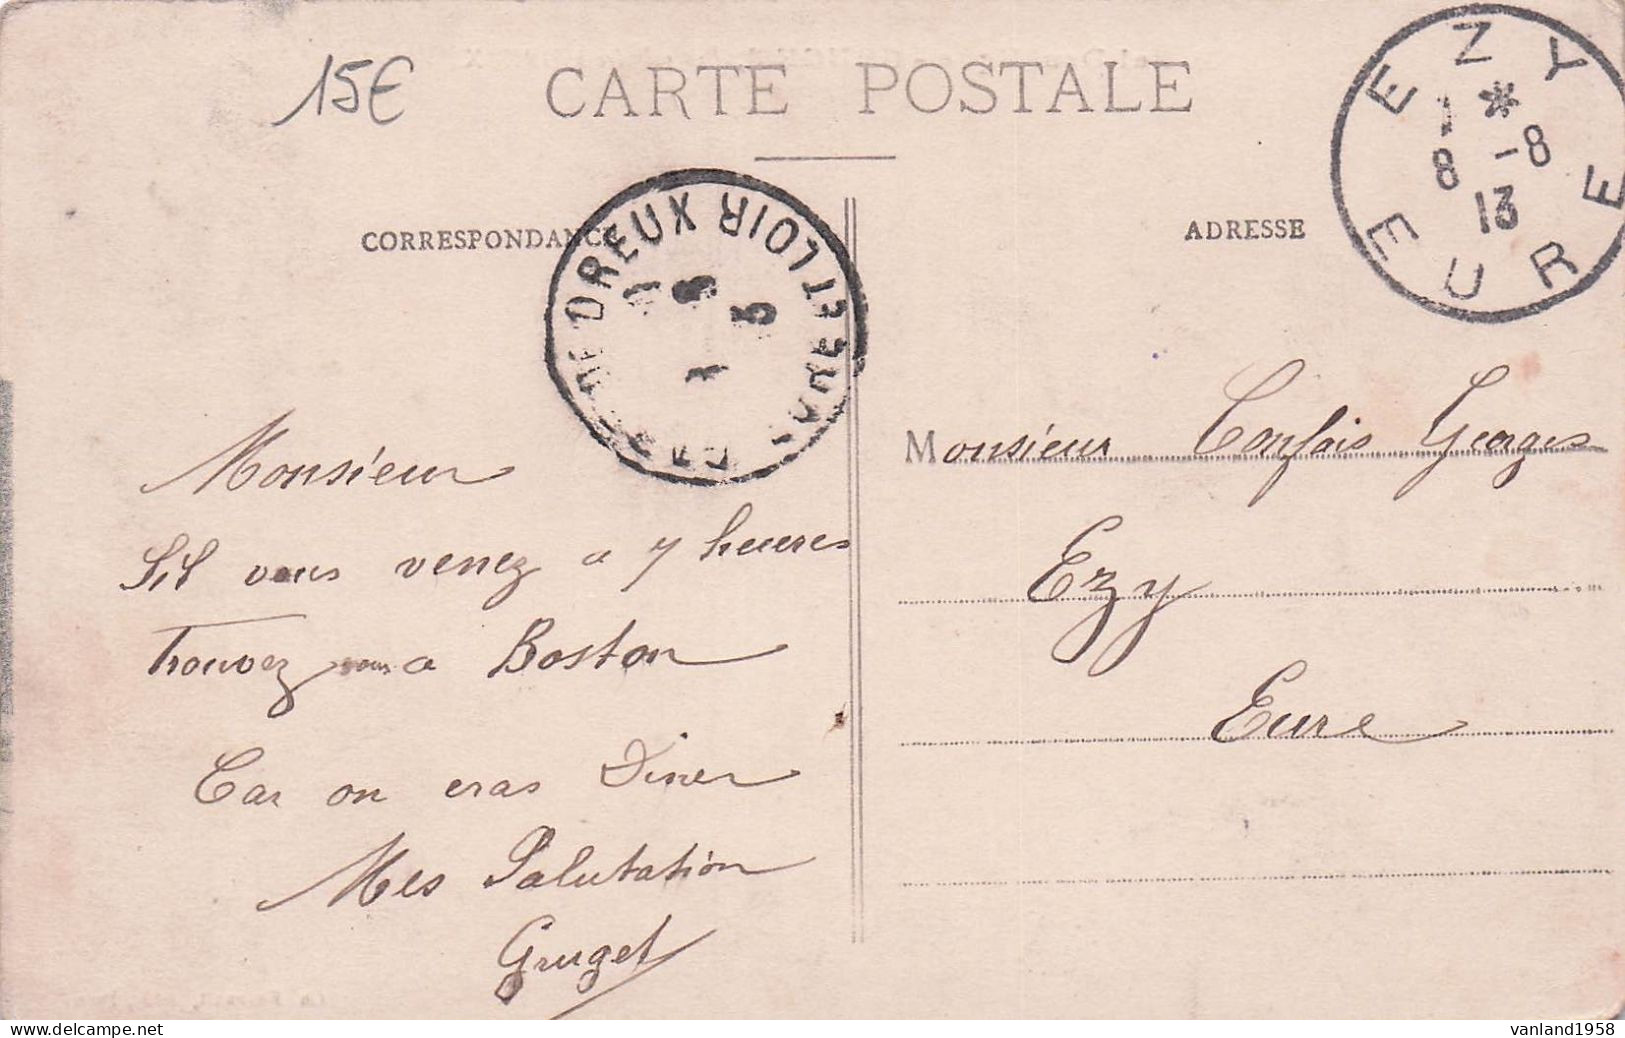 15€
CARTE POSTALE
EZY
1 *
8 -8
13
EURE
CORRESPONDANCE
ADRESSE
DREUX
EURE-ET-LOIR
Monsieur
Sil vous venez a 7 heures
Trouvez vous a Boston
Car on eras Diner
Mes Salutation
Gruget
Monsieur Confais Georges
Ezy
Eure
vanland1958